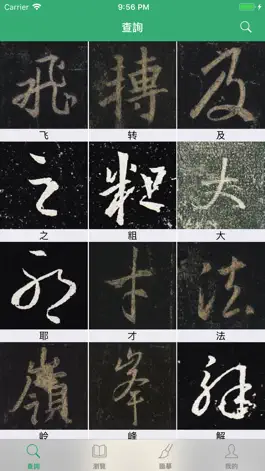 Carrier 9:56 PM
查詢
飛 摶 及
飞 转 及
之 粗 大
之 粗 大
耶 才 法
耶 才 法
嶺 峯 解
岭 峰 解
查詢 瀏覽 臨摹 我的